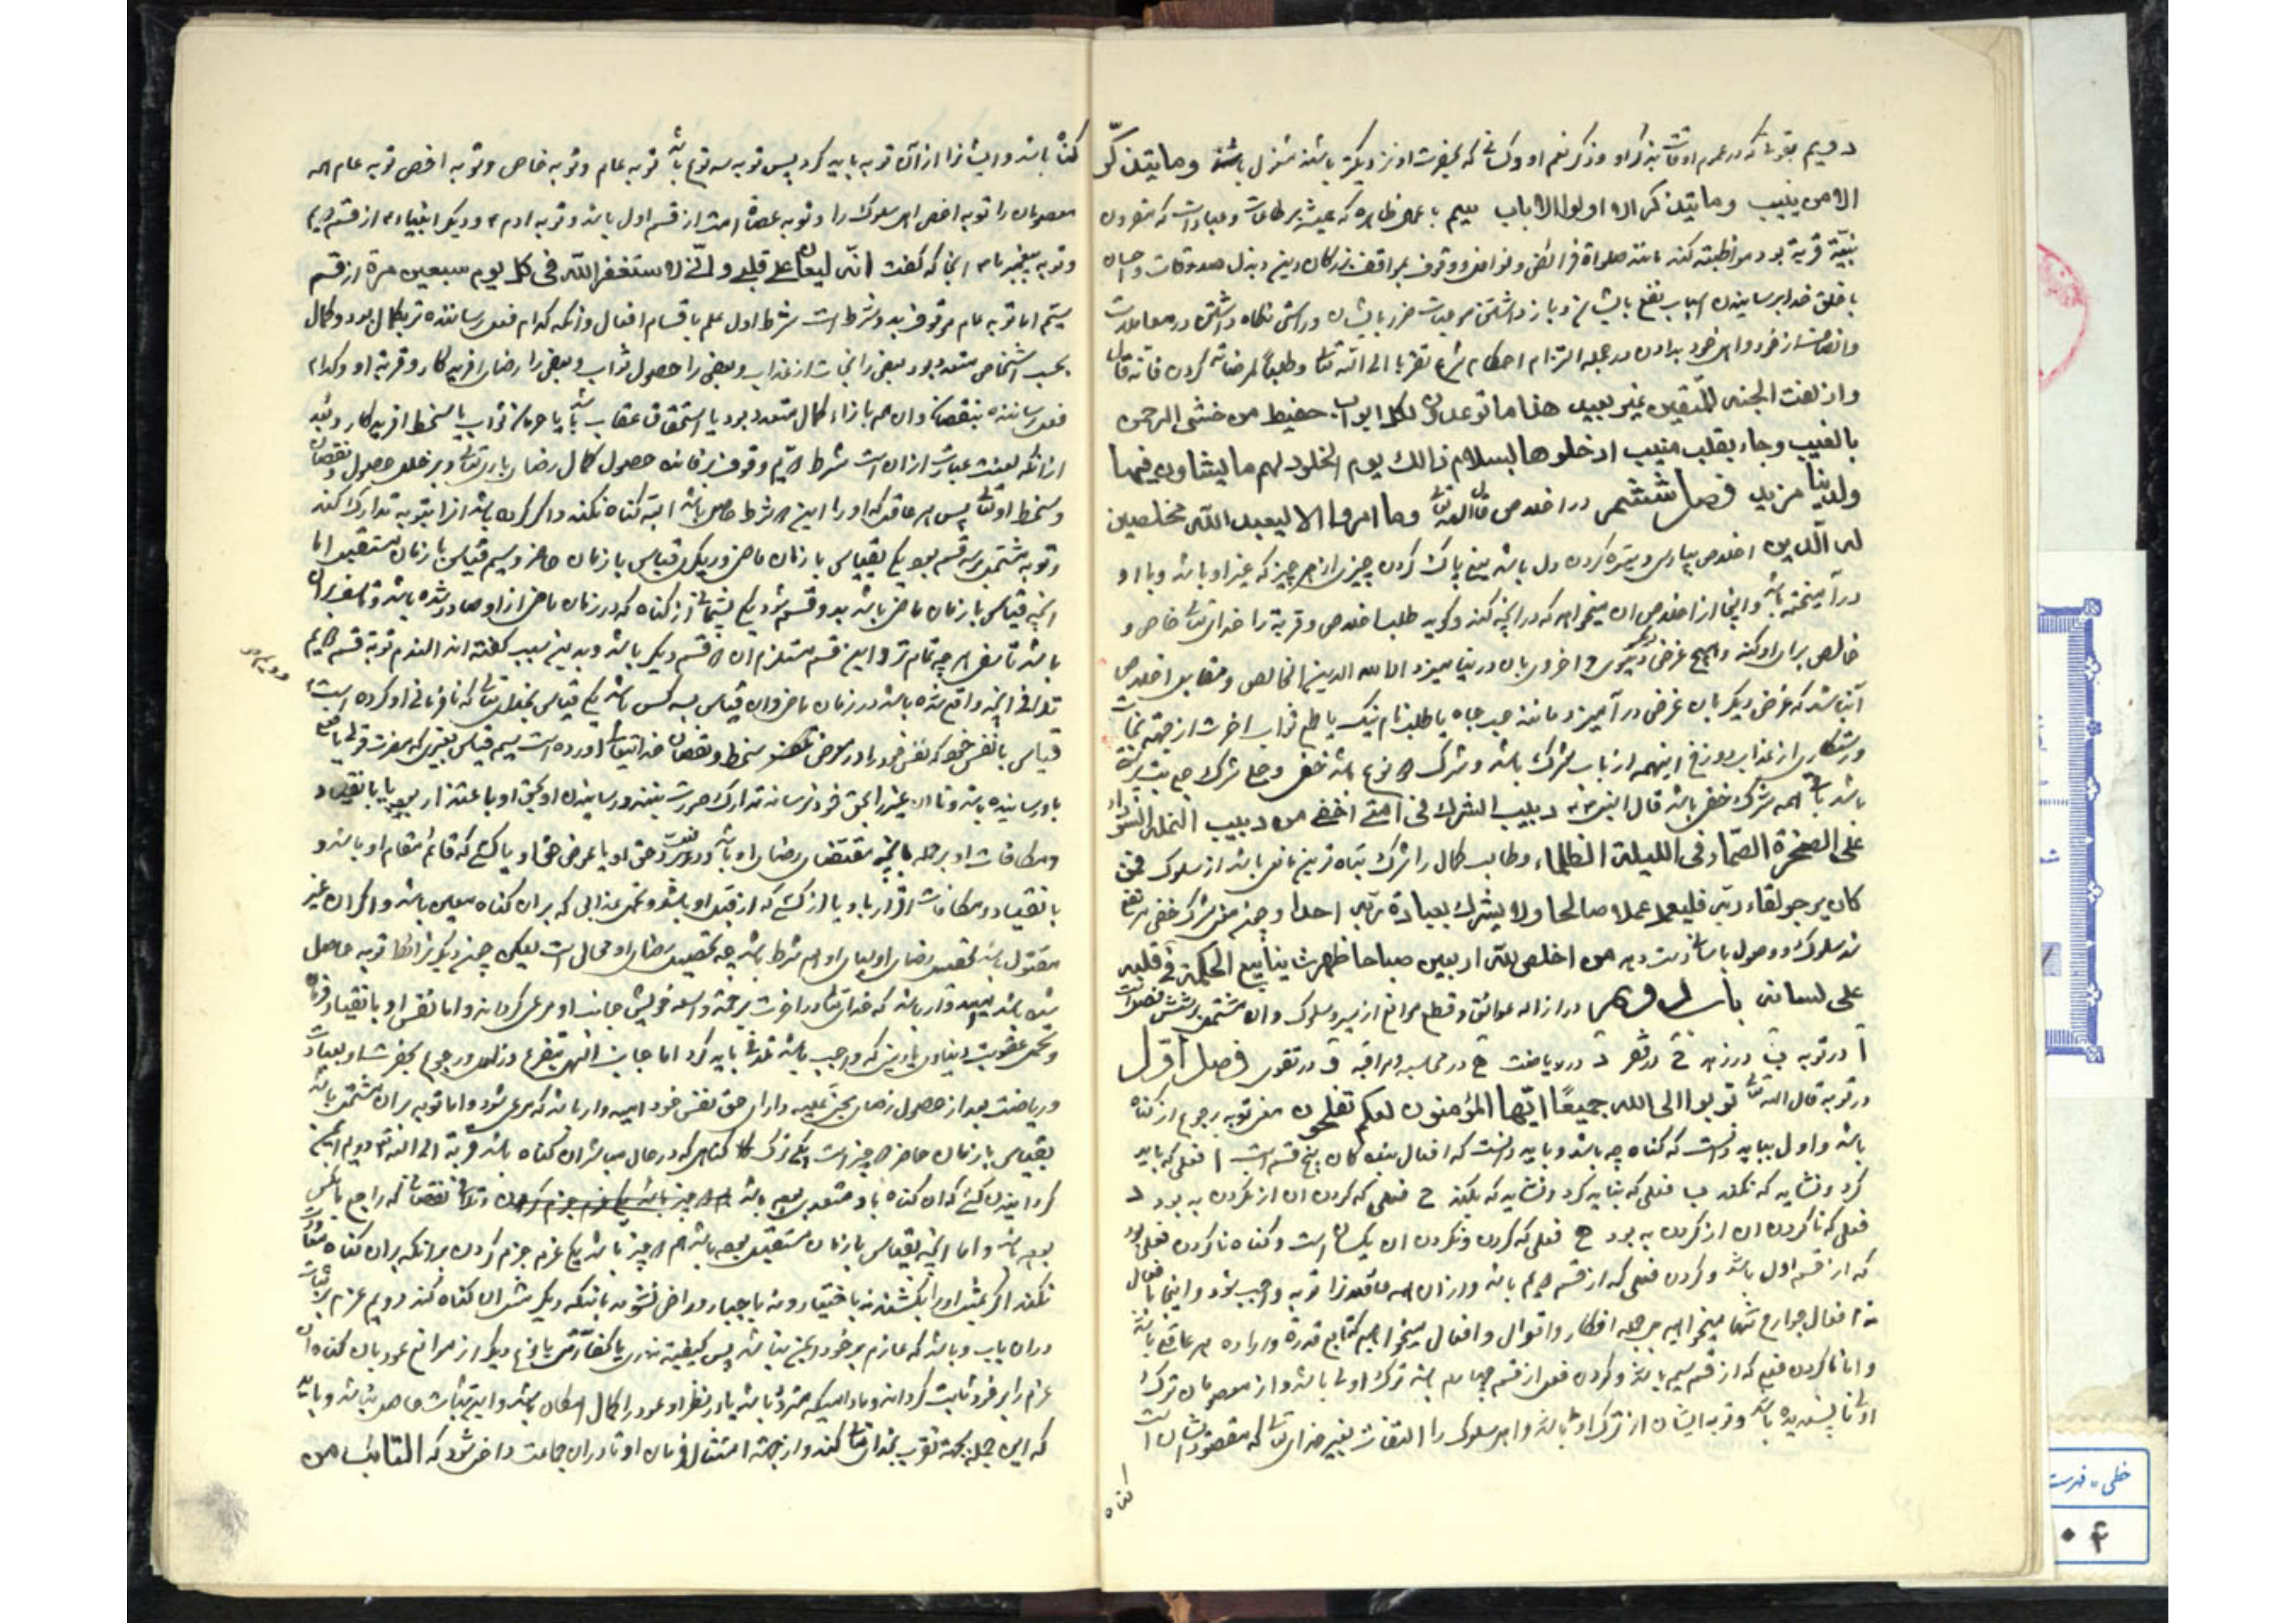 دویم بقول که در عموم اوقات بذکر او و ذکر نعم او و کسانی که بحضرت او نزدیکتر باشند مشغول باشند وما یتذکر
الا من ینیب وما یتذکر الا اولوا الالباب سیم باعمال ظاهره که همیشه بر طاعات و عبادات که مقرون
بنیّة قربة بود مواظبت کند مانند صلواة فرائض و نوافل و وقوف بمواقف بزرگان دین و بذل صدقات و احسان
با خلق خدا و رسانیدن اسباب نفع بایشان و باز داشتن موجبات ضرر بایشان و راستی نگاه داشتن در معاملات
وانصاف از خود و اهل خود بدادن و در جمله التزام احکام شرع تقربا الی الله تعالی وطلبا لمرضاته کردن فانه قال
وازلفت الجنه للمتقین غیر بعید هذا ما توعدون لکل اواب حفیظ من خشی الرحمن
بالغیب وجاء بقلب منیب ادخلوها بسلام ذالک یوم الخلود لهم ما یشاؤن فیها
ولدینا مزید فصل ششم در اخلاص قال الله تعالی وما امروا الا لیعبدوا الله مخلصین
له الدین اخلاص بپارسی ویژه کردن دل باشد یعنی پاک کردن چیزی از هر چیز که غیر او باشد و با او
درآمیخته باشد و اینجا از اخلاص ان میخواهم که هر انچه کند و گوید طلبا خلاص و قربة را خدای تعالی خاص و
خالص برای او کند و هیچ غرض دنیوی و اخروی بان در نیامیزد الا لله الدین الخالص و مقابل اخلاص
آنباشد که غرض دیگر بان غرض در آمیزد مانند حب جاه یا طلب نام نیک یا طمع ثواب اخرت از جهة نجات
و رستگاری از عذاب دوزخ اینهمه از باب شرک باشد و شرک ۲ نوع باشد خفی و جلی شرک جلی بت پرستی
باشد باقی همه شرک خفی باشد قال النبی ص دبیب الشرک فی امتی اخفی من دبیب النملة السوداء
علی الصخرة الصماء فی اللیلة الظلماء و طالب کمال را شرک تباه ترین مانعی باشد از سلوک فمن
کان یرجو لقاء ربه فلیعمل عملا صالحا ولا یشرک بعبادة ربه احدا و چون شرک خفی مرتفع
شد سلوک و وصول باسانی دست دهد من اخلص لله اربعین صباحا ظهرت ینابیع الحکمة فی قلبه
علی لسانه باب دوم در ازاله عوائق و قطع موانع از سیر و سلوک و ان مشتمل بر شش فصل است
آ در توبه ب در زهد ج در فقر د در ریاضت ه در محاسبه و مراقبه و در تقوی فصل اول
در توبه قال الله تعالی توبوا الی الله جمیعًا ایّها المؤمنون لعلکم تفلحون معنی توبه رجوع از گناه
باشد و اول بباید دانست که گناه چه باشد و باید دانست که افعال بندگان پنج قسم است ا فعلی که باید
کرد و نشاید که نکند ب فعلی که نباید کرد و نشاید که بکند ج فعلی که کردن ان از نکردن به بود د
فعلی که ناکردن ان از کردن به بود ه فعلی که کردن و نکردن ان یکسان است و گناه ناکردن فعلی بود
که از قسم اول باشد و کردن فعلی که از قسم دویم باشد و از ان همه عاقلانرا توبه واجب بود و اینجا افعال
نه افعال جوارح تنها میخواهیم بل جمله افکار و اقوال و افعال میخواهیم که تابع قدرة و اراده هر عاقلی باشد
و اما ناکردن فعلی که از قسم سیم باشد و کردن فعل از قسم چهارم باشد ترک اولی باشد و از معصومان ترک
اولی ناپسندیده باشد و توبه ایشان از ترک اولی باشد و اهل سلوک را التفات بغیر خدای تعالی که مقصود ایشان است
گناه
گناه باشد و ایشانرا از ان توبه باید کرد پس توبه سه نوع باشد توبه عام و توبه خاص و توبه اخص توبه عام همه
معصومان را توبه اخص اهل سلوک را و توبه عصاة امت از قسم اول باشد و توبه ادم ع و دیگر انبیاء ع از قسم دویم
و توبه پیغمبر ما ص انجا که گفت انّه لیغان علی قلبی وانّی لاستغفر الله فی کل یوم سبعین مرة از قسم
سیّم اما توبه عام موقوف بدو شرط است شرط اول علم باقسام افعال وانکه کدام فعل رساننده تر بکمال بود و کمال
بحسب اشخاص متعدد بود بعضی را نجات از عذاب و بعضی را حصول ثواب و بعضی را رضای افریدگار و قربة او و کدام
فعل رساننده بنقصان و ان هم بازاء کمال متعدد بود یا استحقاق عقاب باشد یا حرمان ثواب یا سخط افریدگار و بعد
از انکه لعنت عبارت از ان است شرط دویم وقوف بر فائده حصول کمال رضای باری تعالی و بر خلل حصول نقصان
و سخط او تعالی پس هر عاقل که او را این ۲ شرط حاصل باشد البته گناه نکند و اگر کرده باشد انرا بتوبه تدارک کند
و توبه مشتمل بر سه قسم بود یکی بقیاس با زمان ماضی و یکی بقیاس با زمان حاضر و سیم قیاس با زمان مستقبل اما
انچه قیاس با زمان ماضی باشد بدو قسم شود یکی پشیمانی از گناه که در زمان ماضی از او صادر شده باشد و تاسف بران
باشد تاسفی هر چه تمام تر و این قسم مستلزم ان ۲ قسم دیگر باشد و بدین سبب گفته اند الندم توبة قسم دویم
تلافی انچه واقع شده باشد در زمان ماضی و ان قیاس بسه کس باشد یکی قیاس بخدای تعالی که نافرمانی او کرده است
قیاس با نفس خود که نفس خود را در معرض نقصان و سخط خدایتعالی اورده است سیم قیاس بغیری که مضرت قولی یا فعلی
باو رسانیده باشد و تا ان غیر را بحق خود نرساند تدارک صورت نبندد و رسانیدن او بحق او یا باعتذار بود یا بانقیاد
و مکافات او در جمله بانچه مقتضی رضای او باشد ودر فعل برد حق او یا عوض حق او یا کسی که قائم مقام او باشد و
بانقیاد و مکافات از او یا از کسی که از قبل او باشد و تحمل عذابی که بران گناه معین باشد و اگر ان غیر
مقتول باشد تحصیل رضای اولیای او هم شرط باشد چه تحصیل رضای او محال است لیکن چون دیگر شرائط توبه حاصل
شده باشد امیدوار باشد که خدای تعالی در اخرت برحمة واسعه خویش جانب او مرعی گرداند و اما نفس او بانقیاد فرمان
و تحمل عقوبت دنیاوی یا دینی که واجب باشد تلافی باید کرد اما جانب الهی بتضرع و زاری و رجوع بحضرت او و بعبادت
و ریاضت بعد از حصول رضای مجنی علیه و ادای حق نفس خود امیدوار باشد که مرعی شود و اما توبه بران مشتمل باشد
بقیاس با زمان حاضر ۲ چیز است یکی ترک گناهی که در حال مباشر ان گناه باشد قربة الی الله تعالی دویم ایمن
گردانیدن کسی که ان گناه باو متعدی بوده باشد و تلافی نقصانی که راجع با کس
بوده باشد و اما انچه بقیاس با زمان مستقبل بوده باشد هم ۲ چیز باشد یکی عزم جزم کردن برانکه بران گناه معاودت
نکند اگر بمثل او را بکشند نه باختیار و نه باجبار و راضی نشود بانکه دیگر مثل ان گناه کند دویم عزم بر ثبات
در ان باب و باشد که عازم بر خود ایمن نباشد پس کیفیته نذری یا کفارتی یا نوعی دیگر از موانع عود بان گناه ان
عزم را بر خود ثابت گرداند و مادامیکه متردد باشد یا در نظر او عود را کمال امکان باشد و این ثبات حاصل نباشد و باید
که این جمله بجهة تقرب بخدای تعالی کند و از جهة امتثال فرمان او تا در ان جماعت داخل شود که التائب من